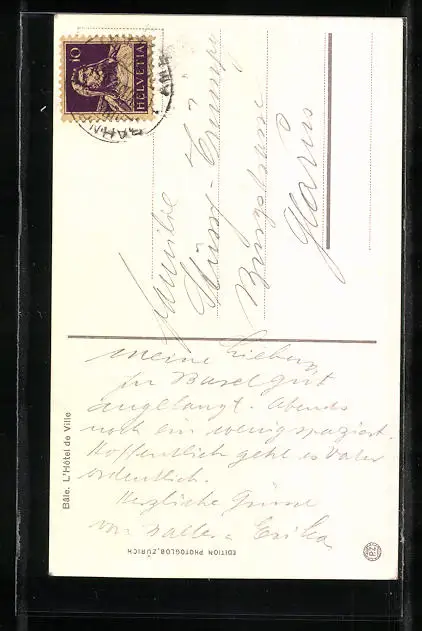 10
HELVETIA
Familie
Stüssy-
Burgstrasse
Glarus
Meine Lieben,
In Basel gut
angelangt. Abends
noch ein wenig spaziert.
Hoffentlich geht es Vater
ordentlich.
Herzliche Grüsse
von Erika
Bâle. L'Hôtel de Ville
EDITION PHOTOGLOB, ZÜRICH